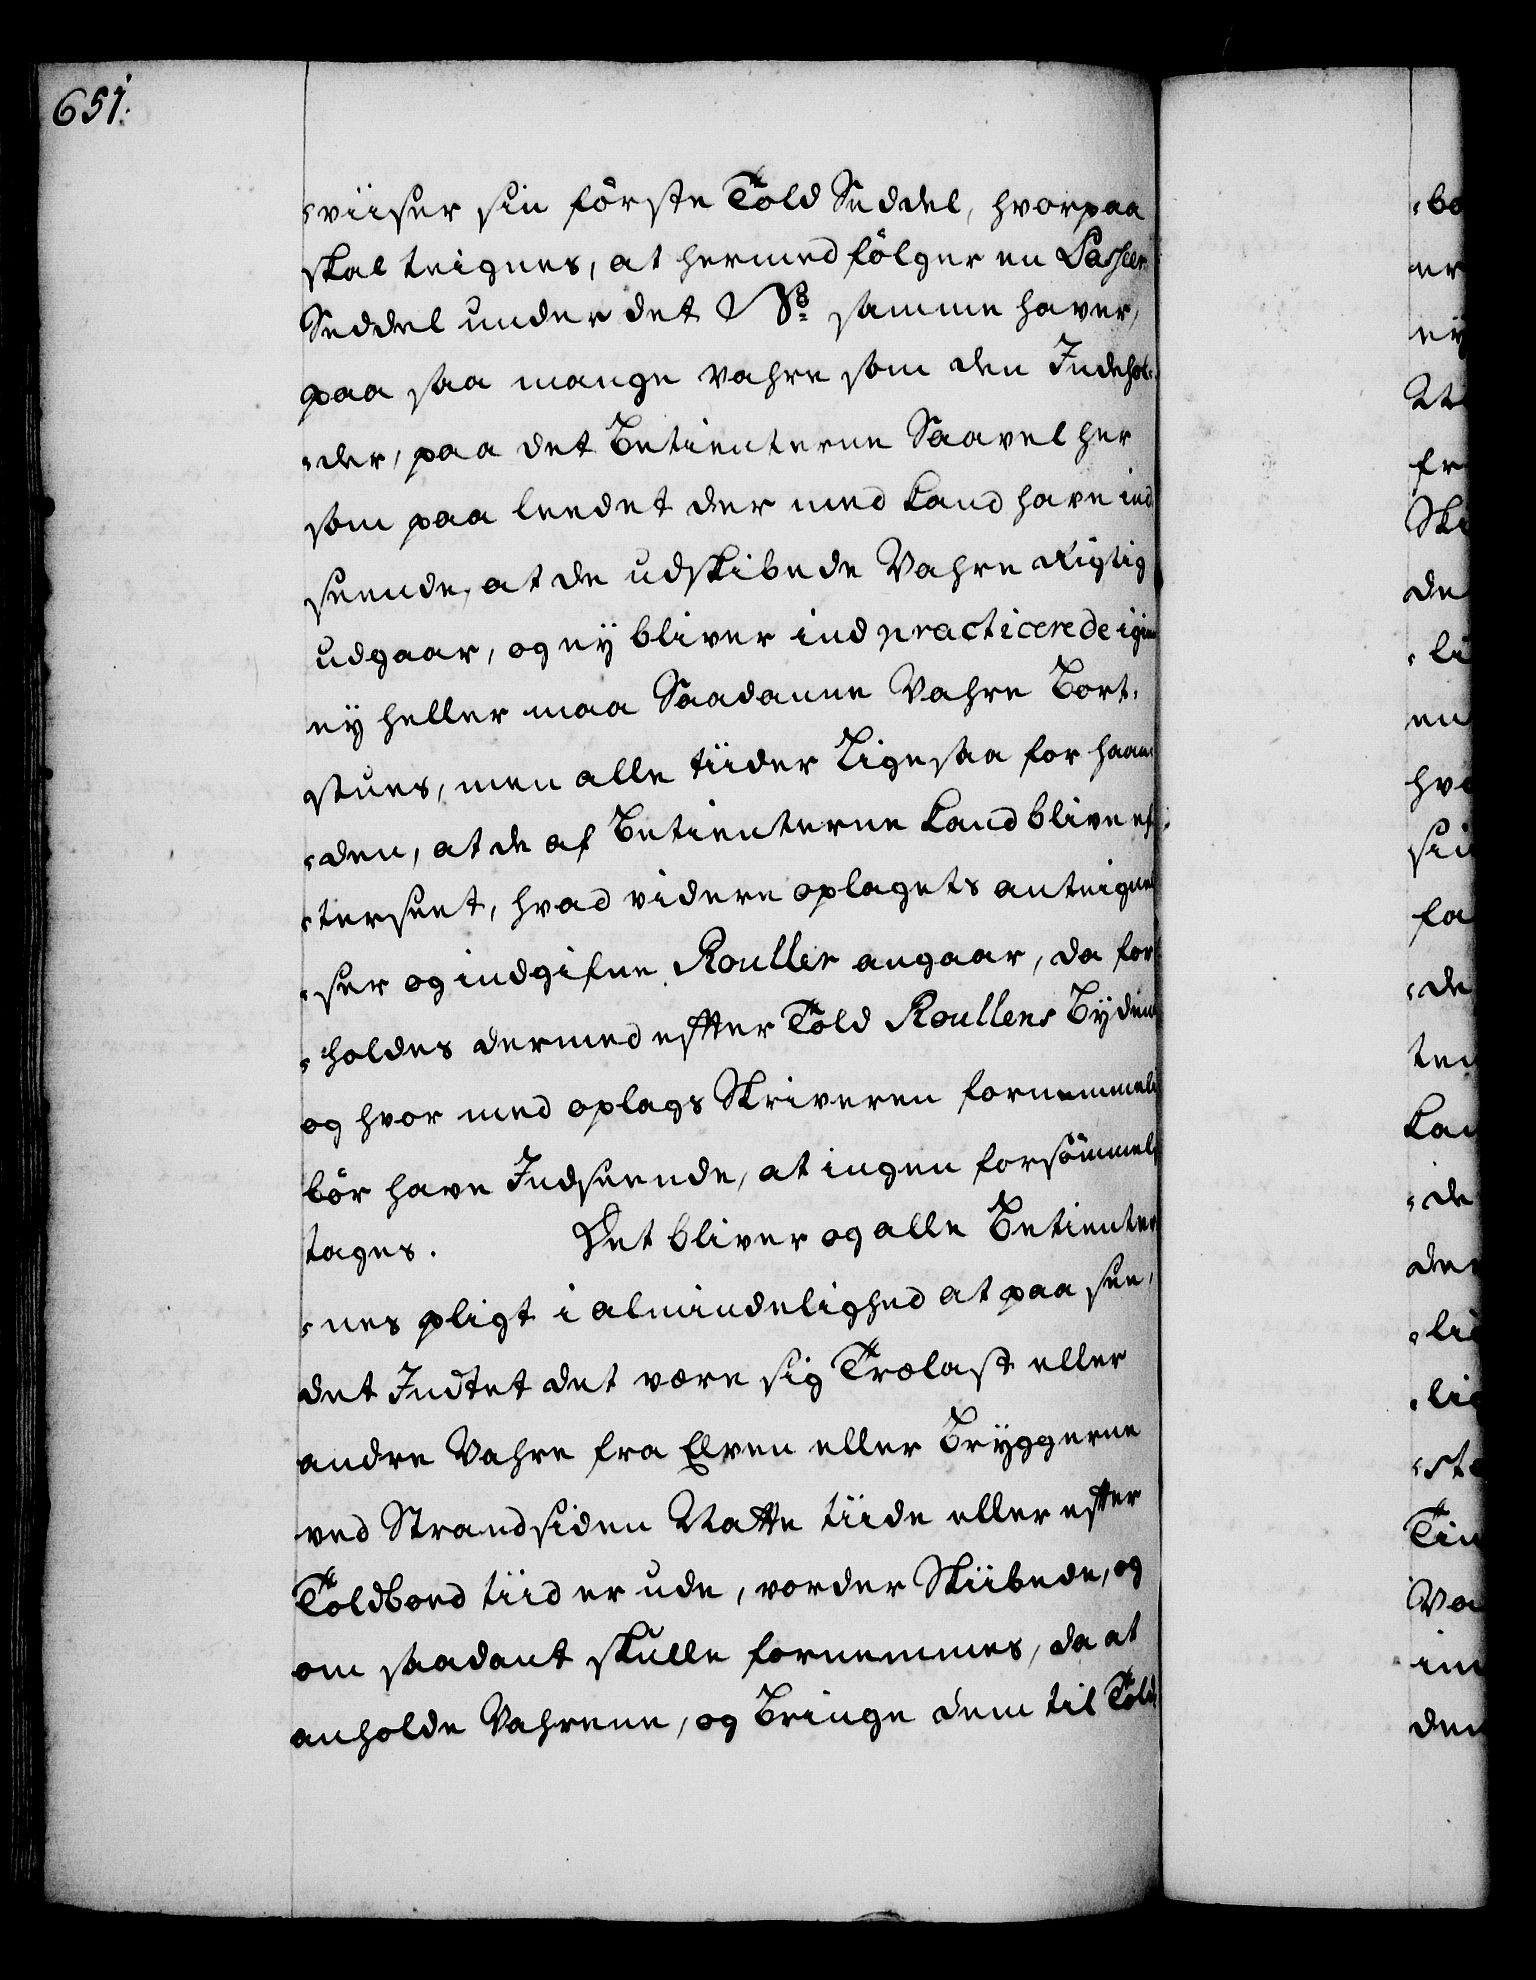 651.
-viiser sin förste Told Seddel, hvorpaa
skal teignes, at hermed fölger en Passeer-
Seddel under det No samme haver,
paa saa mange vahre som den Indehol-
-der, paa det Betienterne Saavel her
som paa leedet der med Kand have ind
seende, at de udskibede Vahre Rigtig
udgaar, og ey bliver ind practicerede igien
ey heller maa Saadanne Vahre Bort-
stues, men alle tiider Ligesaa for haan-
-den, at de af Betienterne Kand blive ef
-terseet, hvad videre oplagets anteignel
-ser og indgifne Roullir angaar, da for
-holdes dermed effter Told Roullens Bydende
og hvor med oplags Skriveren fornemmelig
bör have Indseende, at ingen forsömmelse
tages. Det bliver og alle Betienter
-nes pligt i almindelighed at paa see,
det Indtet det være sig Trælast eller
andre Vahre fra Elven eller Bryggerne
ved Strandsiden Natte tiide eller effter
Toldboed tiid er ude, vorder Skiibede, og
om saadant skulle fornemmes, da at
anholde Vahrene, og Bringe dem til Told
-bo
er
ey
fr
Ski
de
-li
en
hvo
sin
fa
-de
ten
Kan
-de
der
-lig
-lig
-st
Tin
Va
im
den